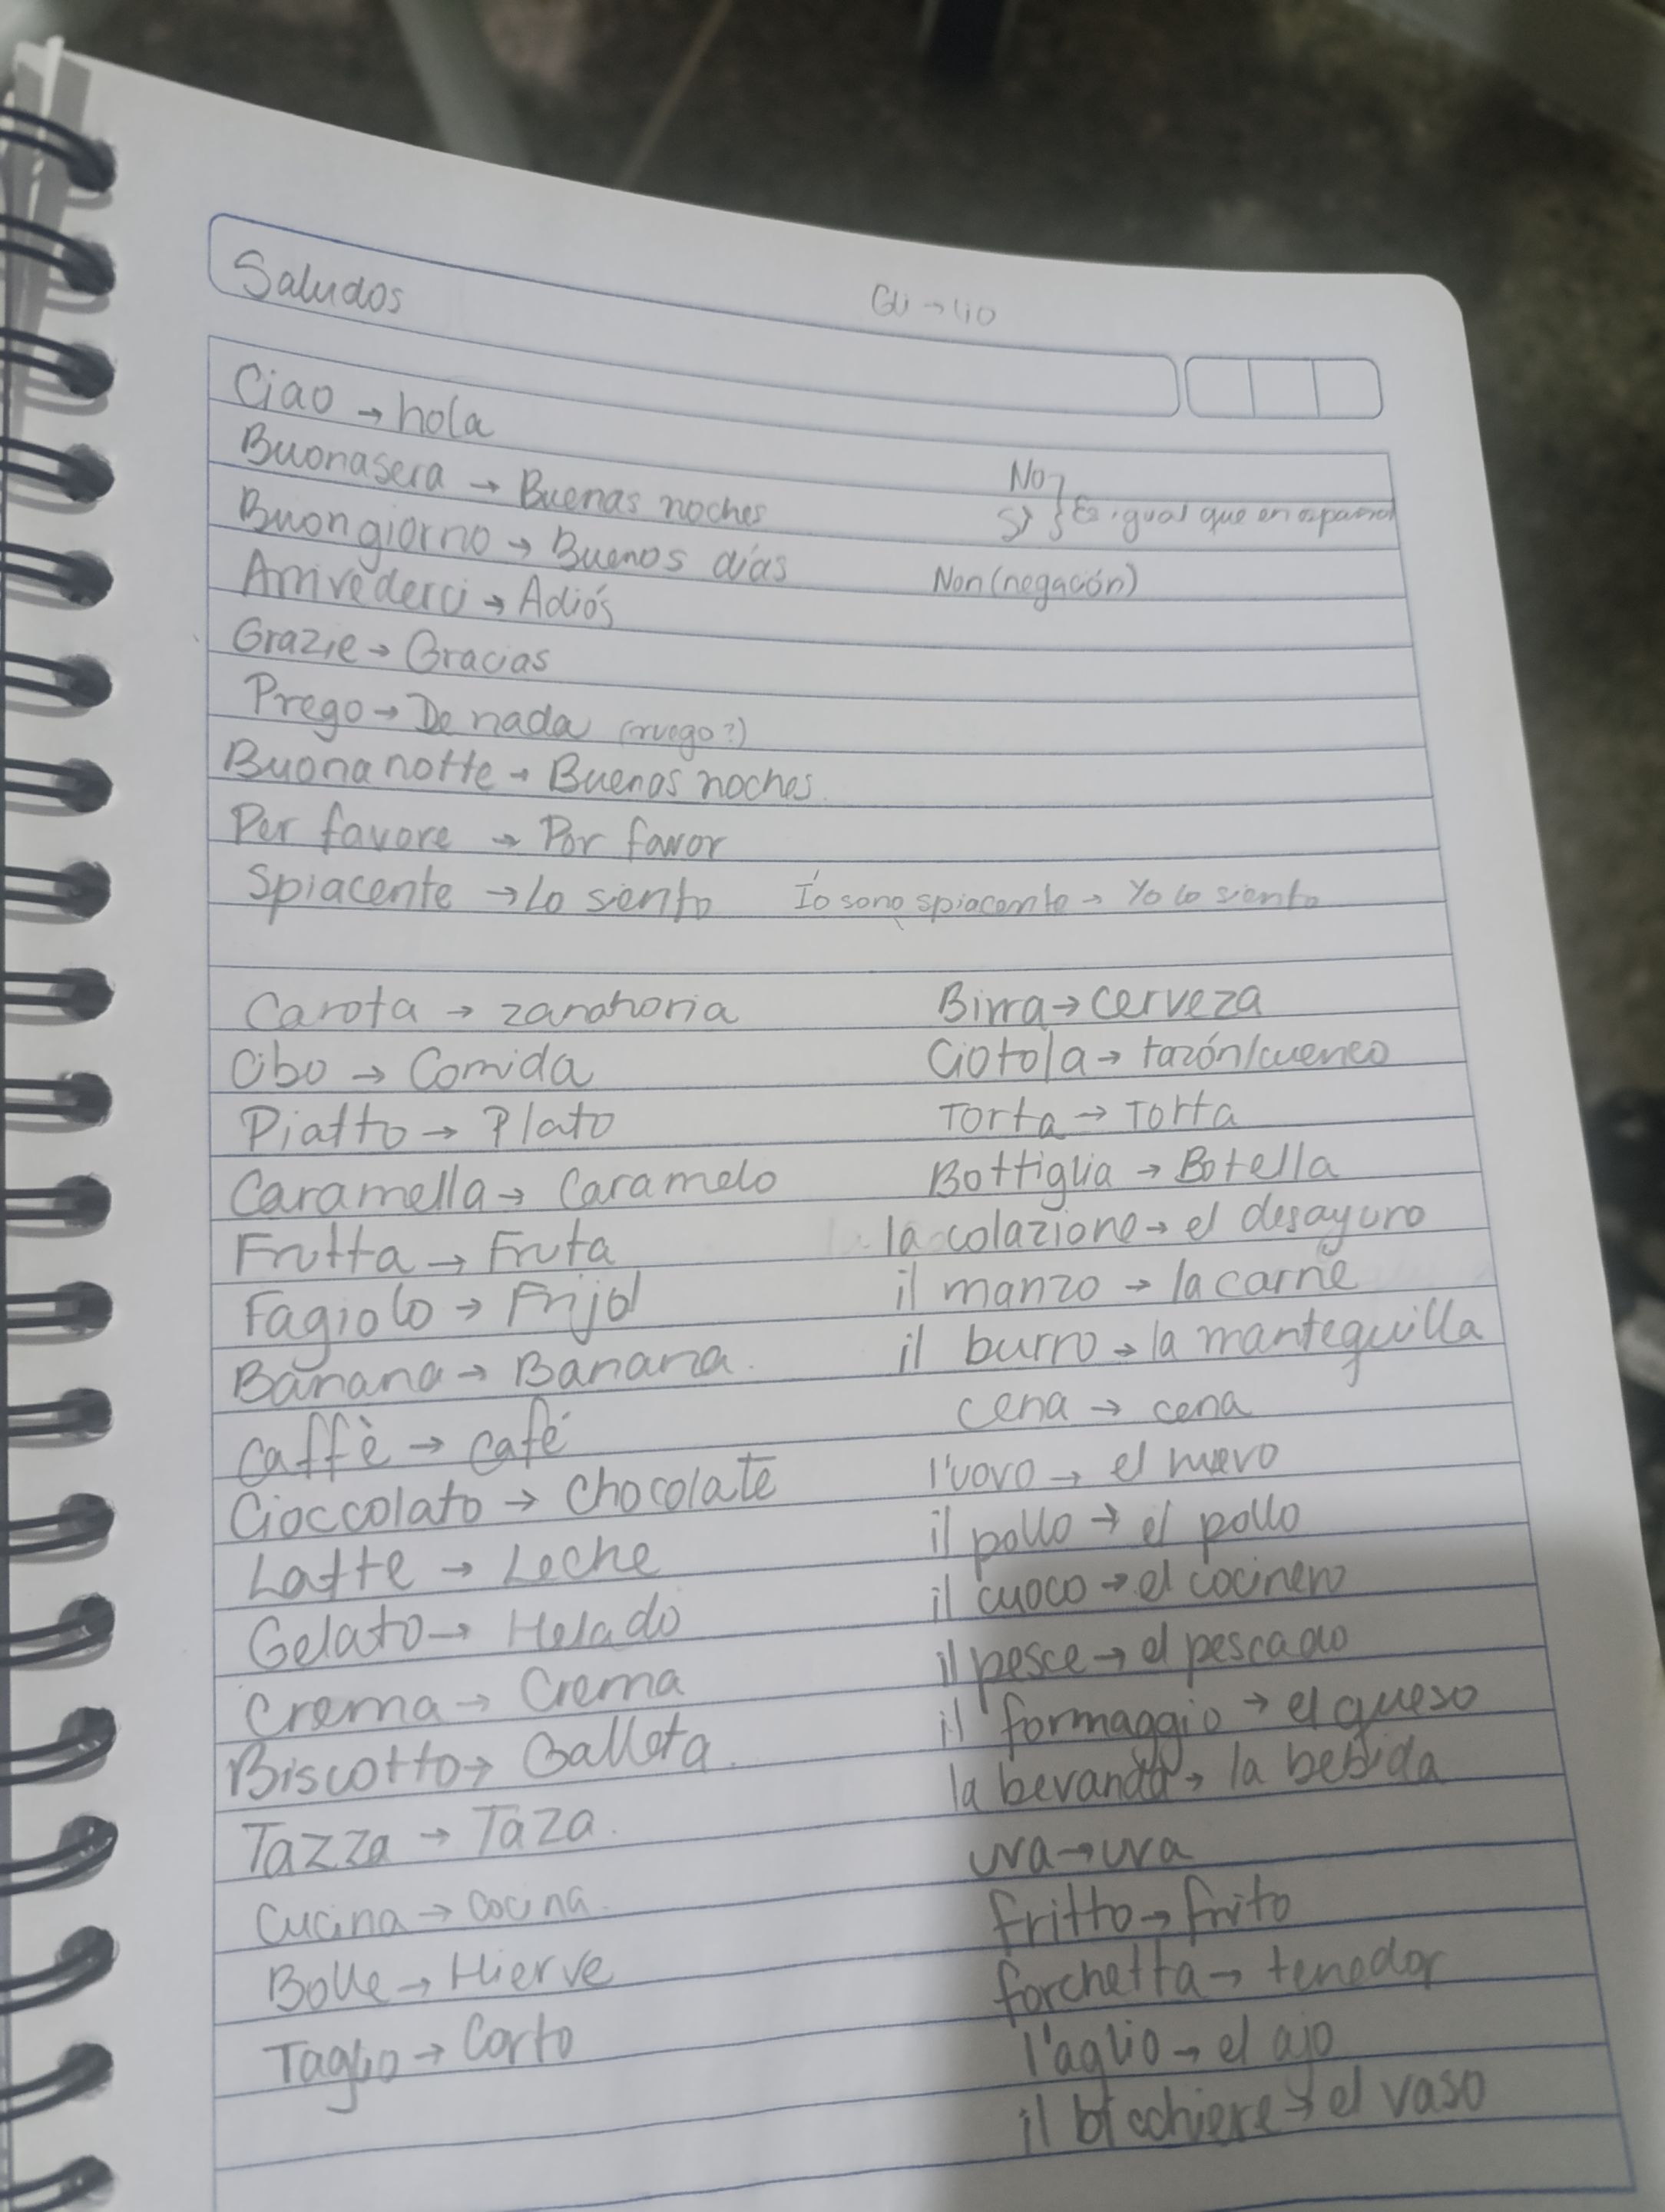 Saludos
Gli → lio
Ciao → hola
Buonasera → Buenas noches
No
Sì } Es igual que en español
Buongiorno → Buenos días
Non (negación)
Arrivederci → Adiós
Grazie → Gracias
Prego → De nada (ruego?)
Buona notte → Buenas noches
Per favore → Por favor
Spiacente → Lo siento
Ío sono spiacente → Yo lo siento
Carota → zanahoria
Cibo → Comida
Piatto → Plato
Caramella → Caramelo
Frutta → Fruta
Fagiolo → Frijol
Banana → Banana.
Caffè → café
Cioccolato → Chocolate
Latte → Leche
Gelato → Helado
Crema → Crema
Biscotto → Galleta.
Tazza → Taza.
Cucina → Cocina.
Bolle → Hierve
Taglio → Corto
Birra → cerveza
Ciotola → tazón/cuenco
Torta → Torta
Bottiglia → Botella
la colazione → el desayuno
il manzo → la carne
il burro → la mantequilla
cena → cena
l'uovo → el huevo
il pollo → el pollo
il cuoco → el cocinero
il pesce → el pescado
il formaggio → el queso
la bevanda → la bebida
uva → uva
fritto → frito
forchetta → tenedor
l'aglio → el ajo
il bicchiere → el vaso